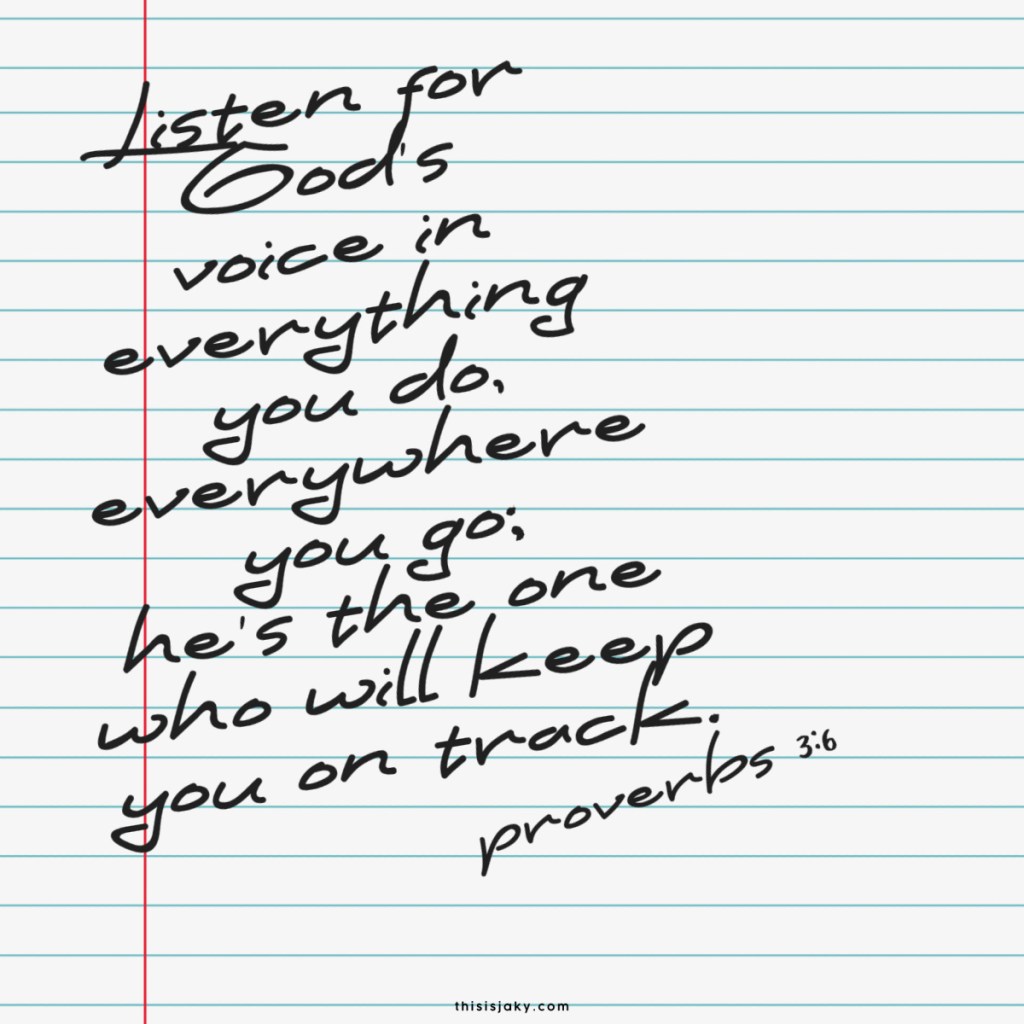 Listen for
God's
voice in
everything
you do,
everywhere
you go;
he's the one
who will keep
you on track.
proverbs 3:6
thisisjaky.com